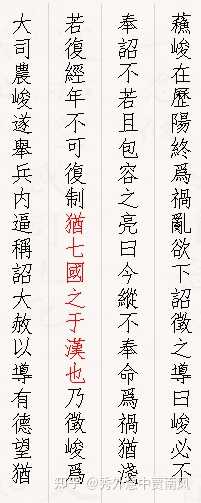 蘓峻在歷陽終爲禍亂欲下詔徵之導曰峻必不
奉詔不若且包容之亮曰今縱不奉命爲禍猶淺
若復經年不可復制猶七國之于漢也乃徵峻爲
大司農峻遂舉兵内逼稱詔大赦以導有德望猶
知乎 @秀外惠中賈南風